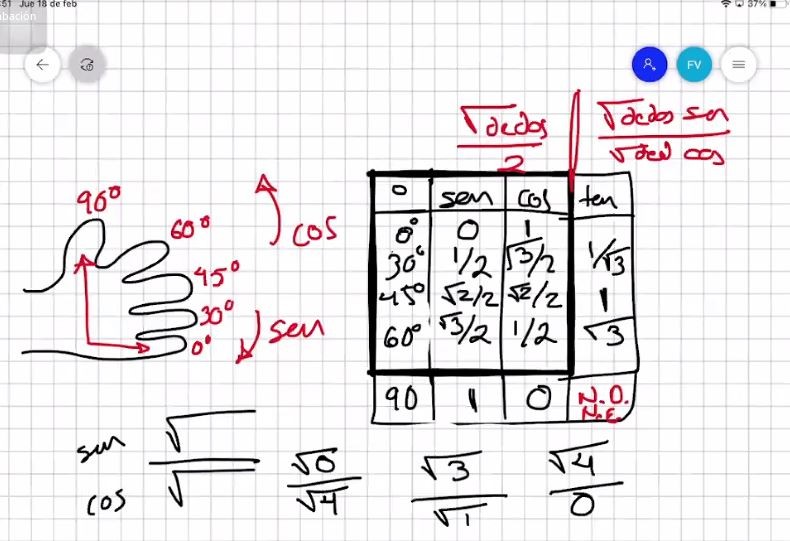 51 Jue 18 de feb
37%
bación
FV
√dedos
2
√dedos sen
√ded cos
90°
60°
cos
45°
30°
sen
0°
° sen cos tan
0° 0 1
30° 1/2 √3/2 1/√3
45° √2/2 √2/2 1
60° √3/2 1/2 √3
90 1 0 N.D.
N.E.
sen √
cos √
√0
√4
√3
√1
√4
0